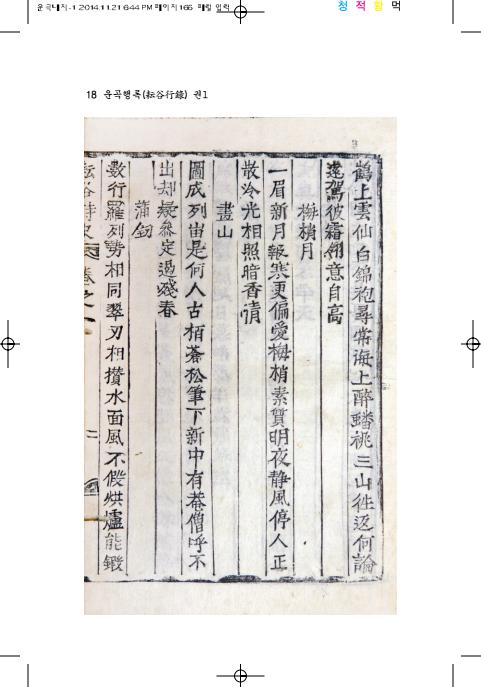 운곡내지-1 2014.11.21 6:44 PM 페이지166 매킨 입력
청 적 황 먹
18 운곡행록(耘谷行錄) 권1
鶴上雲仙白錦袍尋常海上醉蟠桃三山往返何論
遠駕彼霜翎意自高
梅梢月
一眉新月報寒更偏愛梅梢素質明夜静風停人正
散冷光相照暗香情
畫山
圖成列岫是何人古栢蒼松筆下新中有菴僧呼不
出却疑叅定過殘春
蒲釰
數行羅列勢相同翠刃相攢水面風不假烘爐能鍛
耘谷詩史 卷之一 二